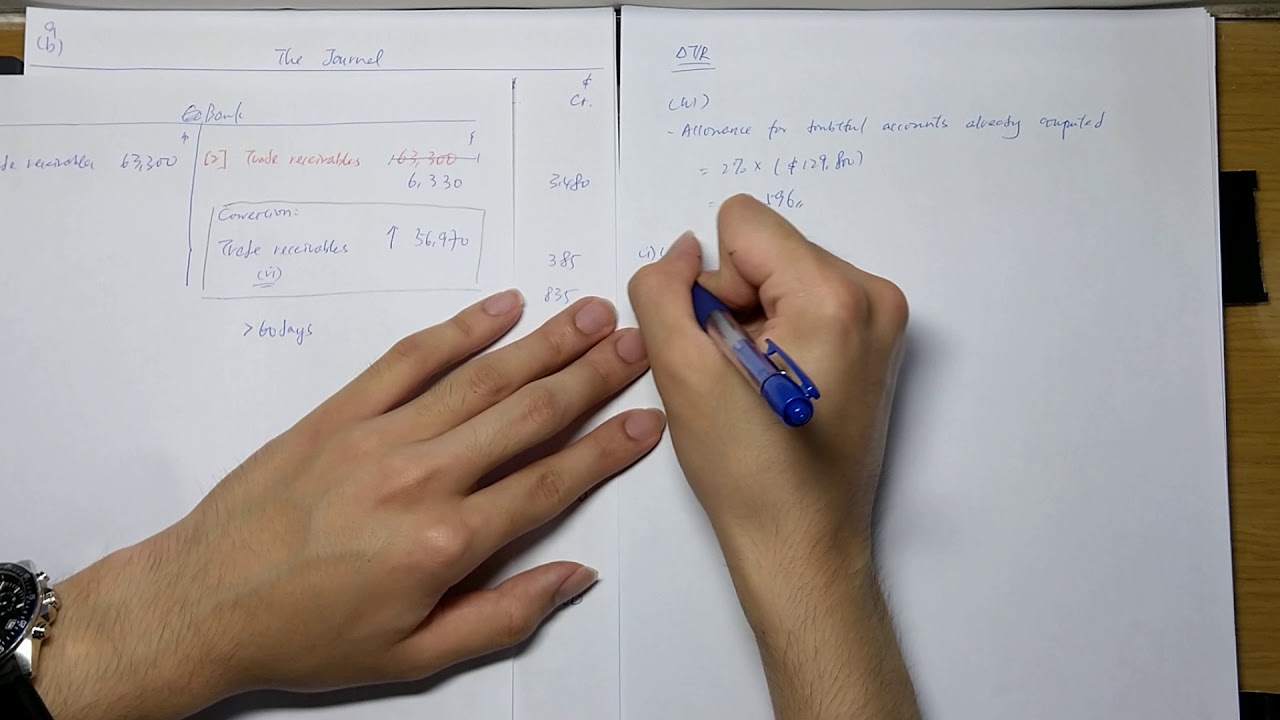 9
(b)
The Journal
$
Cr.
Bank
$
$
63,300
[2] Trade receivables 63,300
6,330
3,480
Conversion:
Trade receivables ↑ 56,970
(vi)
385
835
> 60 days
DTR
(W1)
- Allowance for doubtful accounts already computed
= 2% × ($129,800)
=